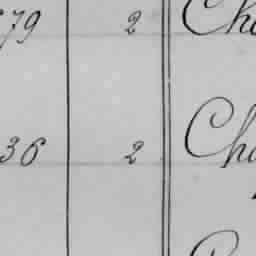 79 2 Cha
36 2 Cha